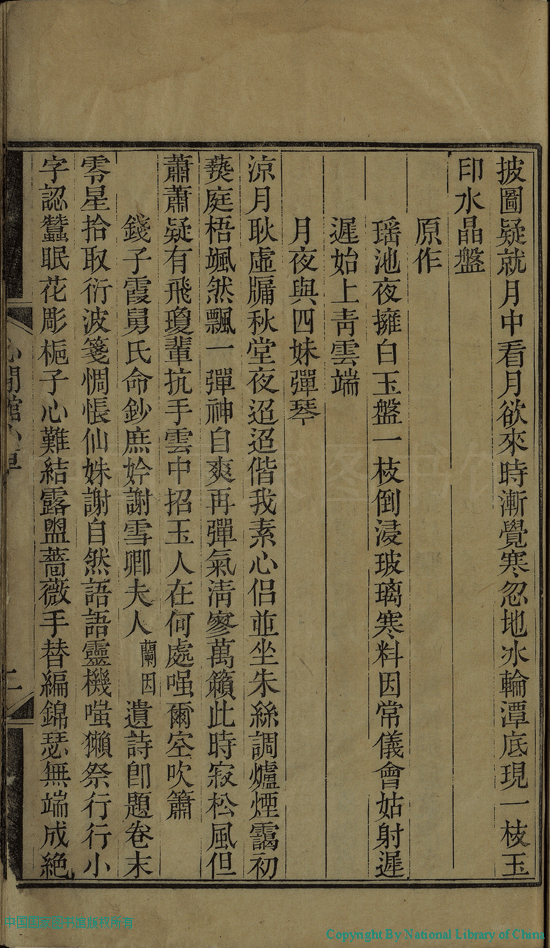 披圖疑就月中看月欲來時漸覺寒忽地冰輪潭底現一枝玉
印水晶盤
原作
瑶池夜擁白玉盤一枝倒浸玻璃寒料因常儀會姑射遲
遲始上青雲端
月夜與四妹彈琴
涼月耿虛牖秋堂夜迢迢偕我素心侶並坐朱絲調爐煙靄初
爇庭梧颯然飄一彈神自爽再彈氣清寥萬籟此時寂松風但
蕭蕭疑有飛瓊輩抗手雲中招玉人在何處嗤爾空吹簫
錢子霞舅氏命鈔庶妗謝雪卿夫人蘭因遺詩卽題卷末
零星拾取衍波箋惆悵仙姝謝自然語語靈機嗤獺祭行行小
字認蠶眠花彫梔子心難結露盥薔薇手替編錦瑟無端成絕
閒館小草
二
Copyright By National Library of China